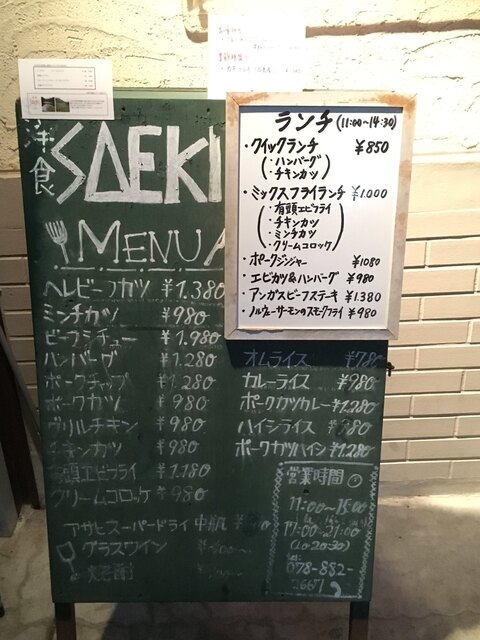 洋食 SAEKI
MENU
ヘレビーフカツ ¥1.380
ミンチカツ ¥980
ビーフシチュー ¥1.980
ハンバーグ ¥1.280
ポークチャップ ¥1.280
ポークカツ ¥980
グリルチキン ¥980
チキンカツ ¥980
有頭エビフライ ¥1.180
クリームコロッケ ¥980
アサヒスーパードライ 中瓶
グラスワイン
ランチ (11:00~14:30)
・クイックランチ ¥850
・ハンバーグ
・チキンカツ
・ミックスフライランチ ¥1.000
・有頭エビフライ
・チキンカツ
・ミンチカツ
・クリームコロッケ
・ポークジンジャー ¥1080
・エビカツ&ハンバーグ ¥980
・アンガスビーフステーキ ¥1.380
・ノルウェーサーモンのスモークフライ ¥980
オムライス ¥780
カレーライス ¥980
ポークカツカレー ¥1.280
ハイシライス ¥980
ポークカツハイシ ¥1.280
営業時間
11:00~15:00
17:00~21:00
(Lo 20:30)
078-882-
2667